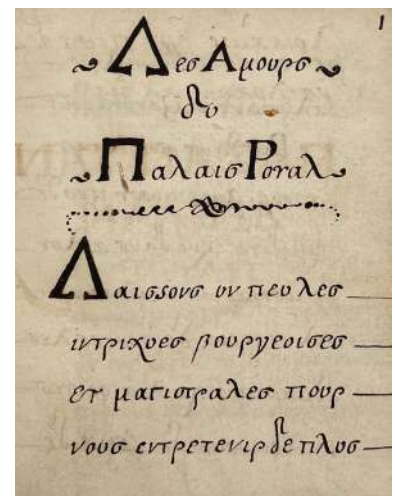 1
Λεσ Αμουρσ
δυ
Παλαισ Ρογαλ
Λαισσονσ υν πευ λεσ
ιντριχυεσ βουργεοισεσ
ετ μαγιστραλεσ πουρ
νουσ εντρετενιρ δε πλυσ